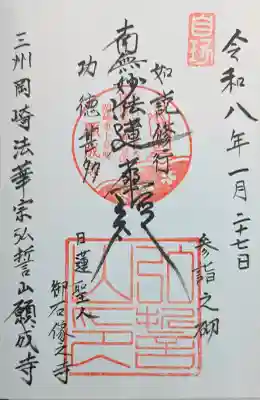 令和八年一月二十七日
参詣之砌
如説修行
南無妙法蓮華経
功徳甚多
日蓮聖人
御石像之寺
三州岡崎法華宗弘誓山願成寺